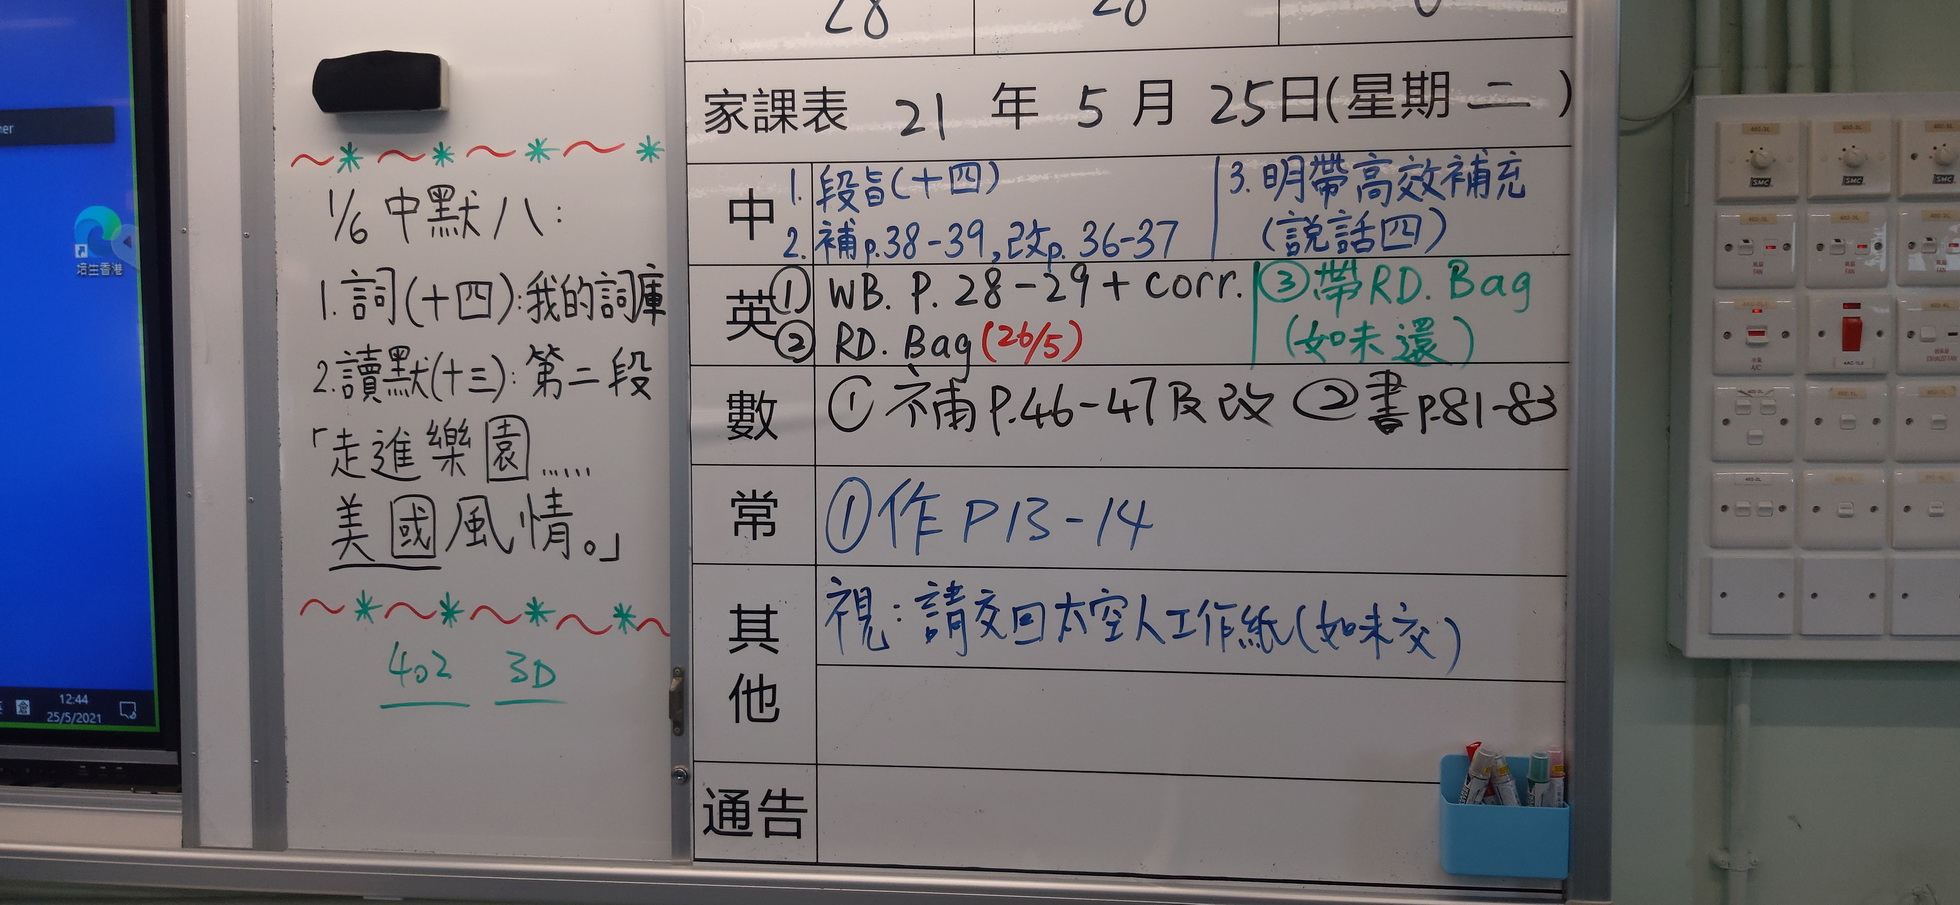 er
培生香港
12:44
25/5/2021
1/6 中默八:
1. 詞(十四):我的詞庫
2. 讀默(十三): 第二段
「走進樂園……
美國風情。」
402 3D
28 28
家課表 21 年 5 月 25日(星期二)
中
1. 段旨(十四)
2. 補p.38-39,改p. 36-37
3. 明帶高效補充
(說話四)
英
① WB. P. 28-29 + corr.
② RD. Bag (26/5)
③帶RD. Bag
(如未還)
數
① 補P.46-47及改 ②書p.81-83
常
①作 P13-14
其他
視:請交回太空人工作紙(如未交)
通告